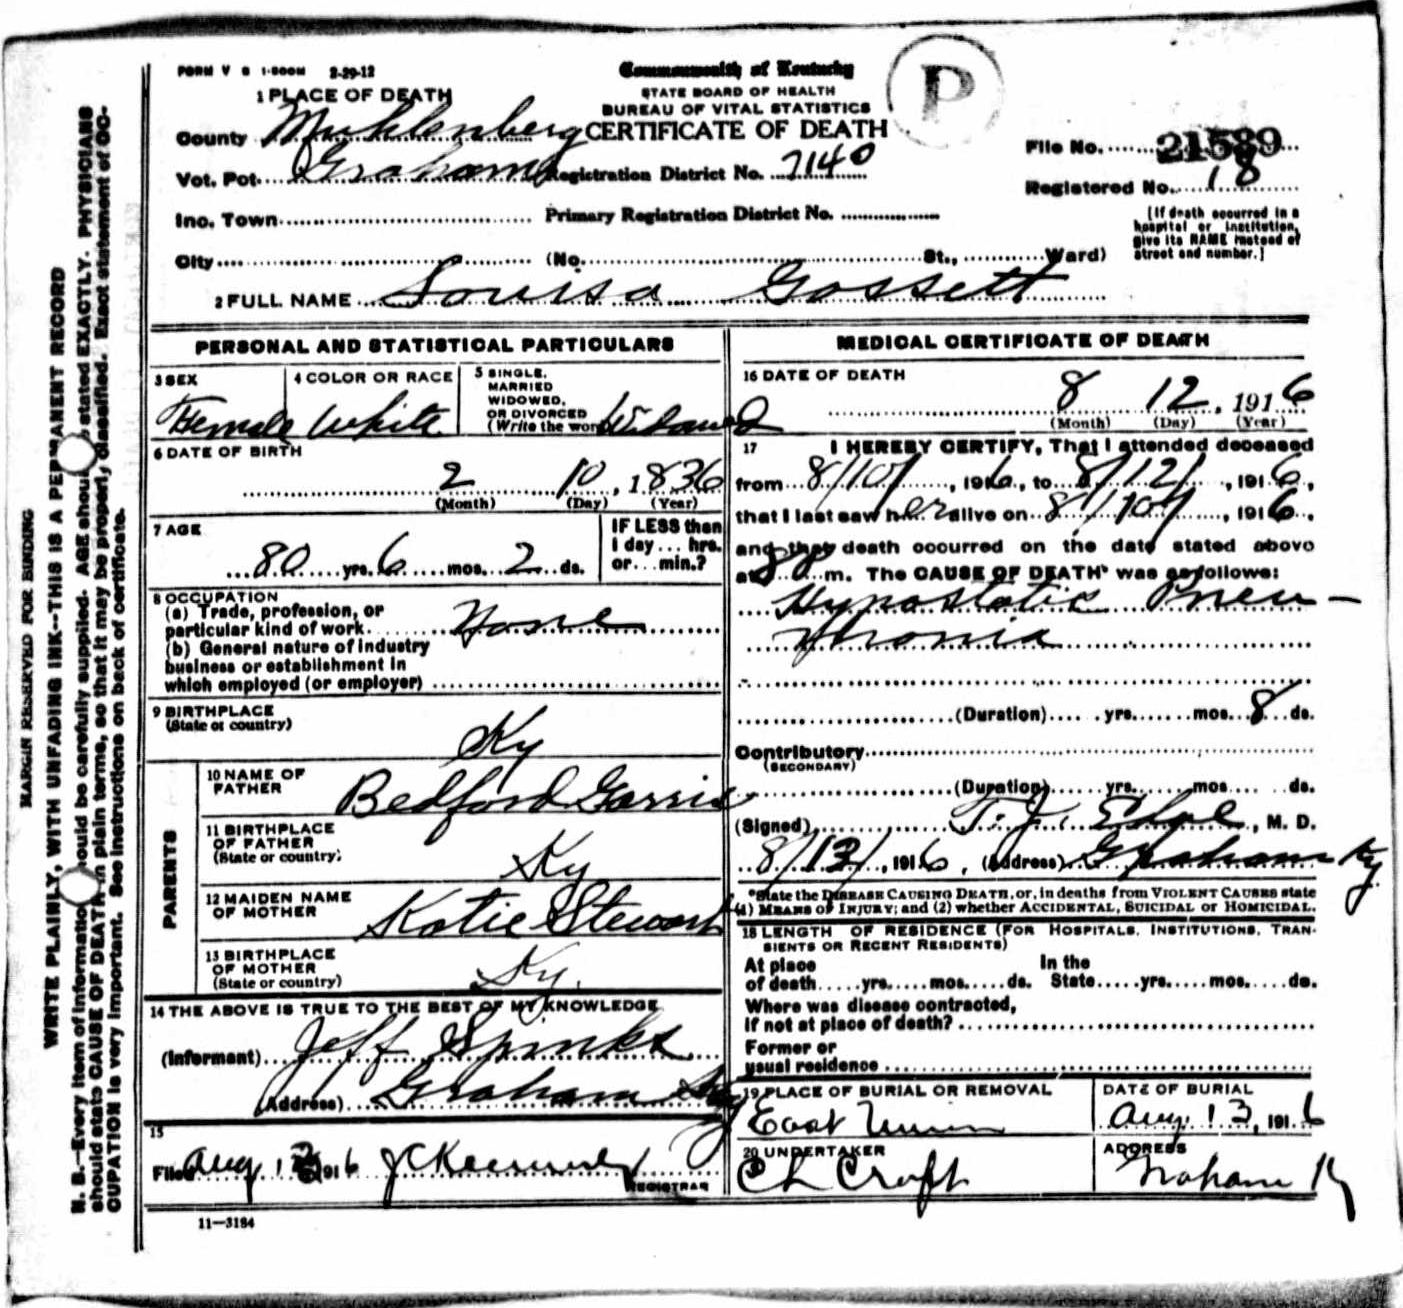 FORM V S 1-500M 2-29-12
Commonwealth of Kentucky
STATE BOARD OF HEALTH
BUREAU OF VITAL STATISTICS
CERTIFICATE OF DEATH
P
1 PLACE OF DEATH
County Muhlenberg
Vot. Pct. Graham Registration District No. 7140
Inc. Town Primary Registration District No.
City (No. St., Ward)
File No. 21589
Registered No. 18
[If death occurred in a
hospital or institution,
give its NAME instead of
street and number.]
2 FULL NAME Louisa Gossett
PERSONAL AND STATISTICAL PARTICULARS
3 SEX
Female
4 COLOR OR RACE
White
5 SINGLE,
MARRIED
WIDOWED,
OR DIVORCED
(Write the word) Widowed
6 DATE OF BIRTH
2 10, 1836
(Month) (Day) (Year)
7 AGE
80 yrs. 6 mos. 2 ds.
IF LESS than
1 day... hrs.
or... min.?
8 OCCUPATION
(a) Trade, profession, or
particular kind of work None
(b) General nature of Industry
business or establishment in
which employed (or employer)
9 BIRTHPLACE
(State or country)
Ky
PARENTS
10 NAME OF
FATHER Bedford Garris
11 BIRTHPLACE
OF FATHER
(State or country)
Ky
12 MAIDEN NAME
OF MOTHER Katie Stewart
13 BIRTHPLACE
OF MOTHER
(State or country) Ky.
14 THE ABOVE IS TRUE TO THE BEST OF MY KNOWLEDGE
(Informant) Jeff Spinks
(Address) Graham Ky
15
Filed Aug 13 1916
REGISTRAR
11—3184
MEDICAL CERTIFICATE OF DEATH
16 DATE OF DEATH
8 12, 1916
(Month) (Day) (Year)
17 I HEREBY CERTIFY, That I attended deceased
from 8/10/, 1916, to 8/12/, 1916,
that I last saw her alive on 8/10/, 1916,
and that death occurred on the date stated above
at 8 m. The CAUSE OF DEATH* was as follows:
Hypostatic Pneu-
monia
(Duration) yrs. mos. 8 ds.
Contributory
(SECONDARY)
(Duration) yrs. mos. ds.
(Signed) T. J. , M. D.
8/13/, 1916, (Address) Graham Ky
*State the DISEASE CAUSING DEATH, or, in deaths from VIOLENT CAUSES state
(1) MEANS OF INJURY; and (2) whether ACCIDENTAL, SUICIDAL or HOMICIDAL.
18 LENGTH OF RESIDENCE (FOR HOSPITALS, INSTITUTIONS, TRAN-
SIENTS OR RECENT RESIDENTS)
At place In the
of death yrs. mos. ds. State yrs. mos. ds.
Where was disease contracted,
if not at place of death?
Former or
usual residence
19 PLACE OF BURIAL OR REMOVAL
East Union
DATE OF BURIAL
Aug 13, 1916
20 UNDERTAKER
C L Croft
ADDRESS
Graham Ky
MARGIN RESERVED FOR BINDING
WRITE PLAINLY, WITH UNFADING INK--THIS IS A PERMANENT RECORD
N. B.—Every item of information should be carefully supplied. AGE should be stated EXACTLY. PHYSICIANS
should state CAUSE OF DEATH in plain terms, so that it may be properly classified. Exact statement of OC-
CUPATION is very important. See instructions on back of certificate.